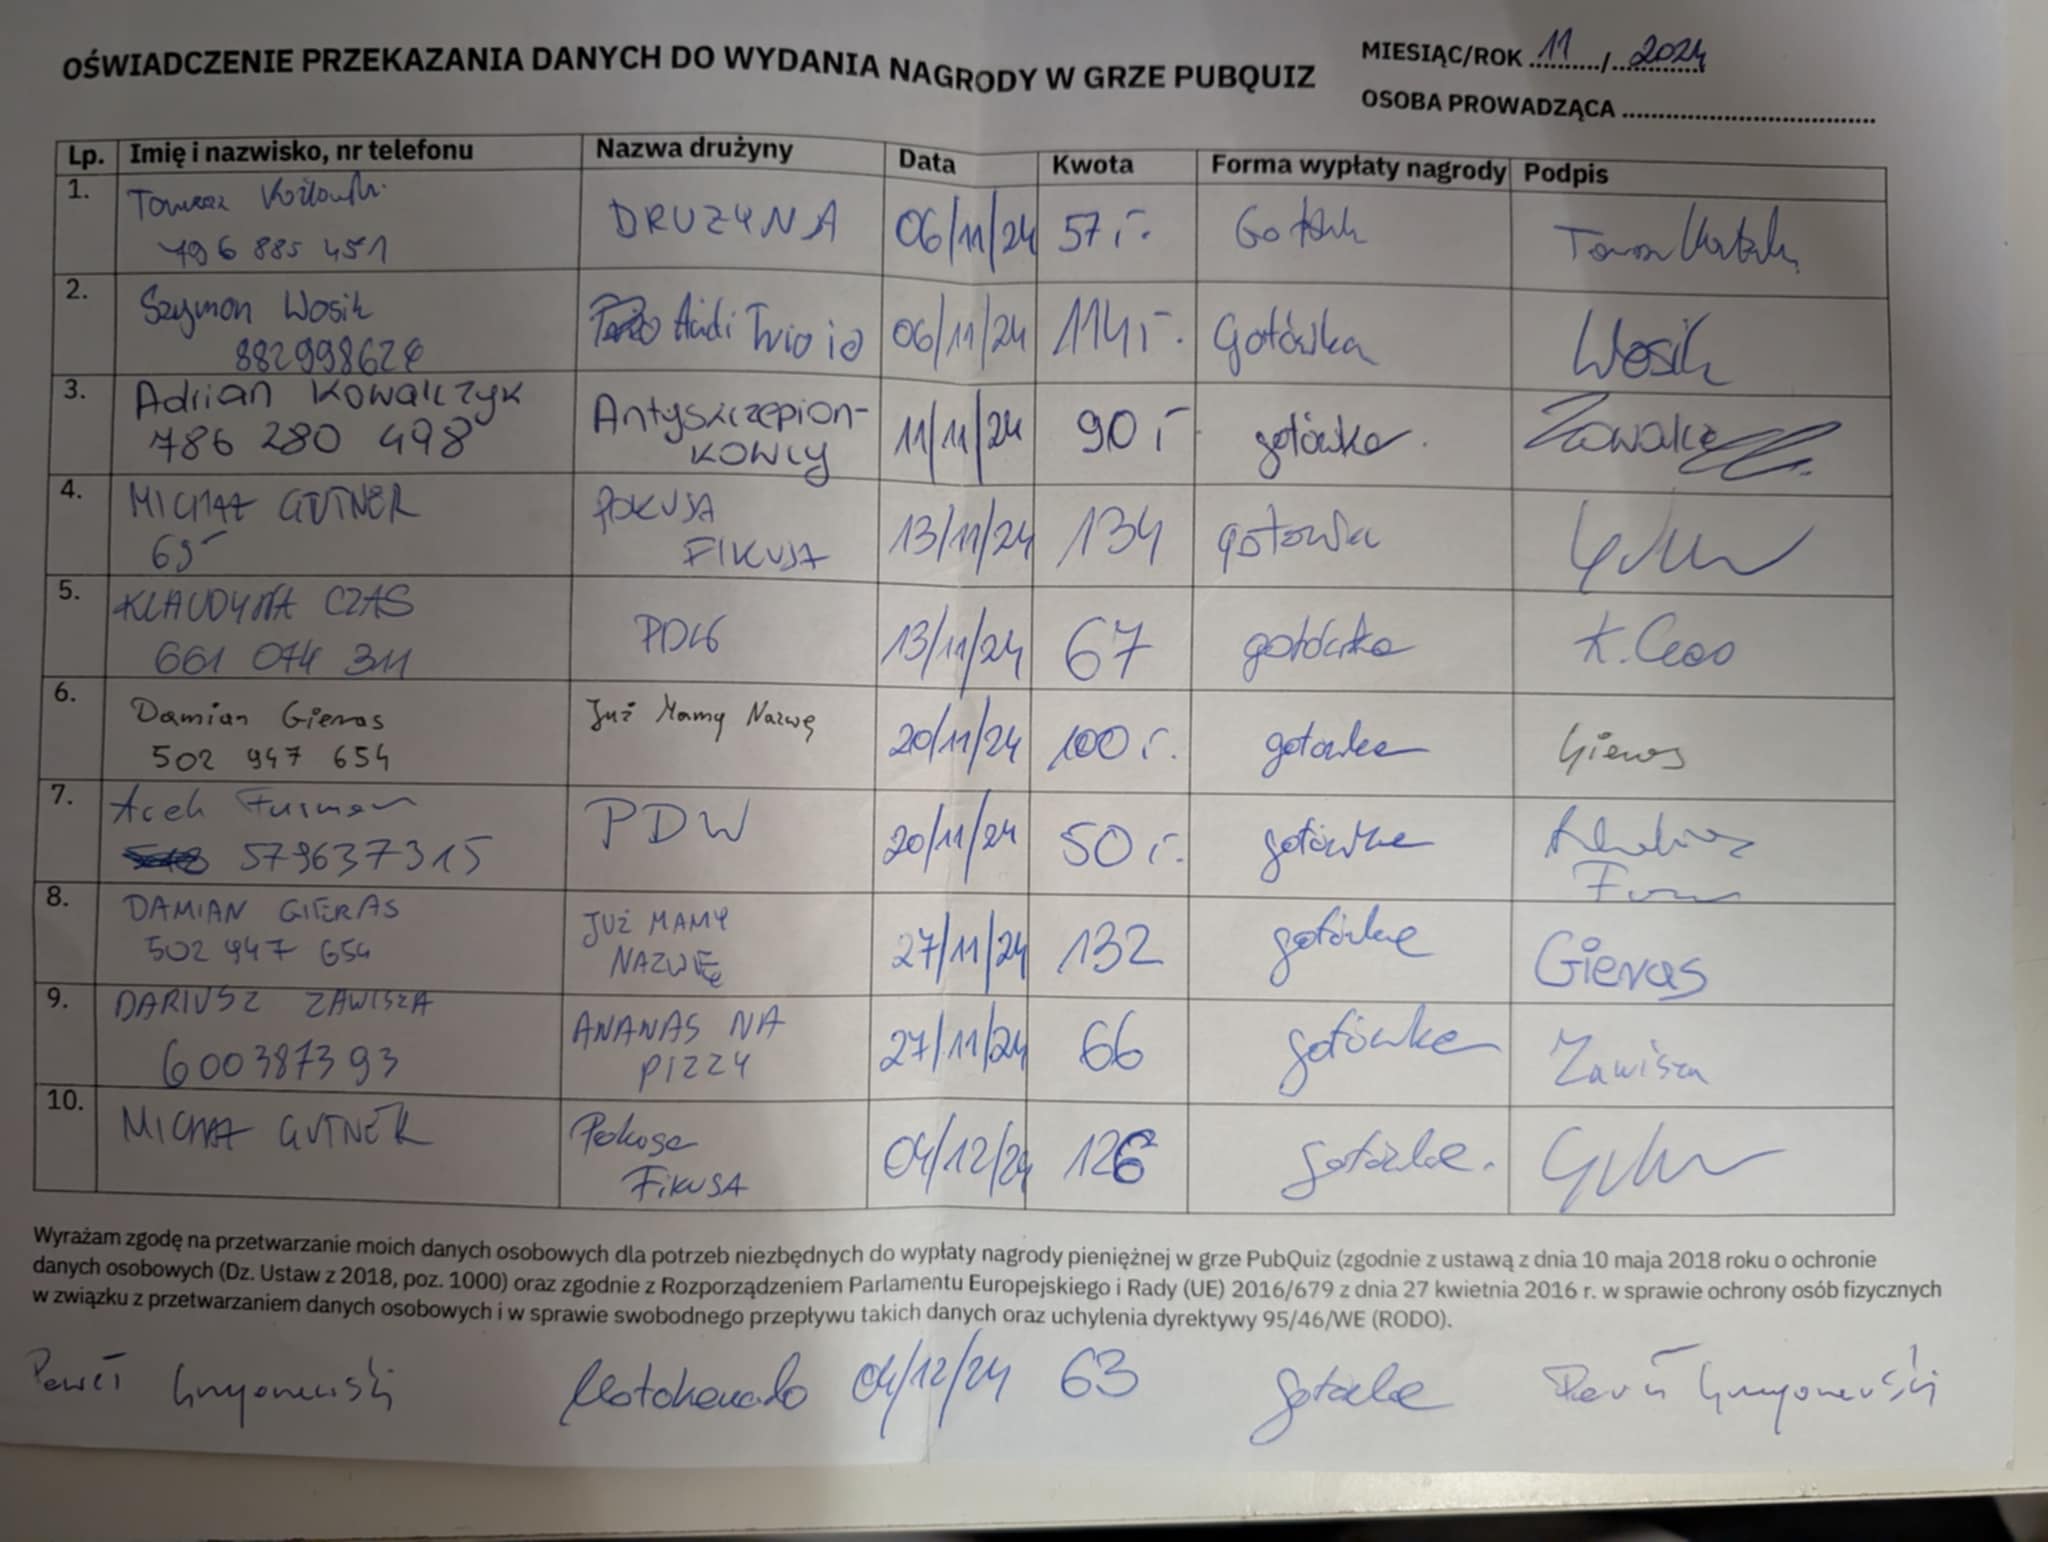 OŚWIADCZENIE PRZEKAZANIA DANYCH DO WYDANIA NAGRODY W GRZE PUBQUIZ
MIESIĄC/ROK 11 / 2024
OSOBA PROWADZĄCA
Lp. Imię i nazwisko, nr telefonu Nazwa drużyny Data Kwota Forma wypłaty nagrody Podpis
1. Tomasz DRUZYNA 06/11/24 57,-
796 885 451
2. Szymon Wosik Audi Trio io 06/11/24 114,- Gotówka Wosik
882998628
3. Adrian Kowalczyk Antyszczepion- 11/11/24 90,- gotówka
786 280 498 KOWCY
4. MICHAŁ GUTNER POKUSA 13/11/24 134 gotowka
695 FIKUSA
5. KLAUDYNA CZAS PDW 13/11/24 67 gotówka K. Czas
661 074 311
6. Damian Gieras Już Mamy Nazwę 20/11/24 100,- gotówka Gieras
502 947 654
7. PDW 20/11/24 50,- gotówka
579637315
8. DAMIAN GIERAS JUŻ MAMY 27/11/24 132 gotówka Gieras
502 947 654 NAZWĘ
9. DARIUSZ ZAWISZA ANANAS NA 27/11/24 66 gotówka Zawisza
600387393 PIZZY
10. MICHAŁ GUTNER Pokusa 04/12/24 126 gotówka.
FIKUSA
Wyrażam zgodę na przetwarzanie moich danych osobowych dla potrzeb niezbędnych do wypłaty nagrody pieniężnej w grze PubQuiz (zgodnie z ustawą z dnia 10 maja 2018 roku o ochronie
danych osobowych (Dz. Ustaw z 2018, poz. 1000) oraz zgodnie z Rozporządzeniem Parlamentu Europejskiego i Rady (UE) 2016/679 z dnia 27 kwietnia 2016 r. w sprawie ochrony osób fizycznych
w związku z przetwarzaniem danych osobowych i w sprawie swobodnego przepływu takich danych oraz uchylenia dyrektywy 95/46/WE (RODO).
Paweł 04/12/24 63 gotówka Paweł